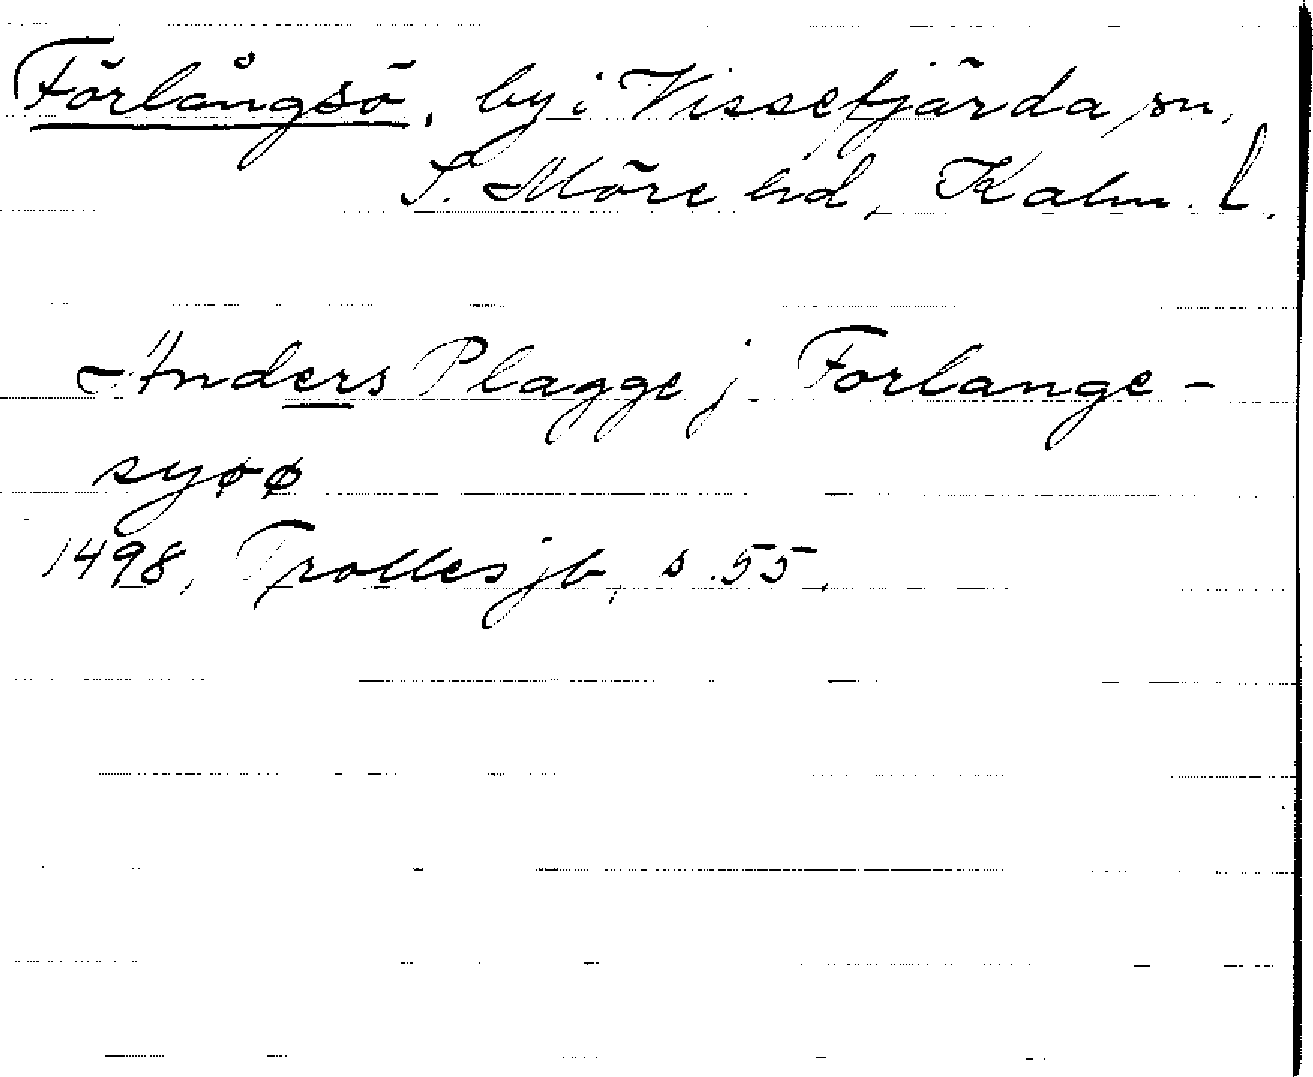 Förlångsö, by i Vissefjärda sn,
S. Möre hd, Kalm. l.
Anders Plagge j Forlange-
syøø
1498, Trolles jb, s. 55,